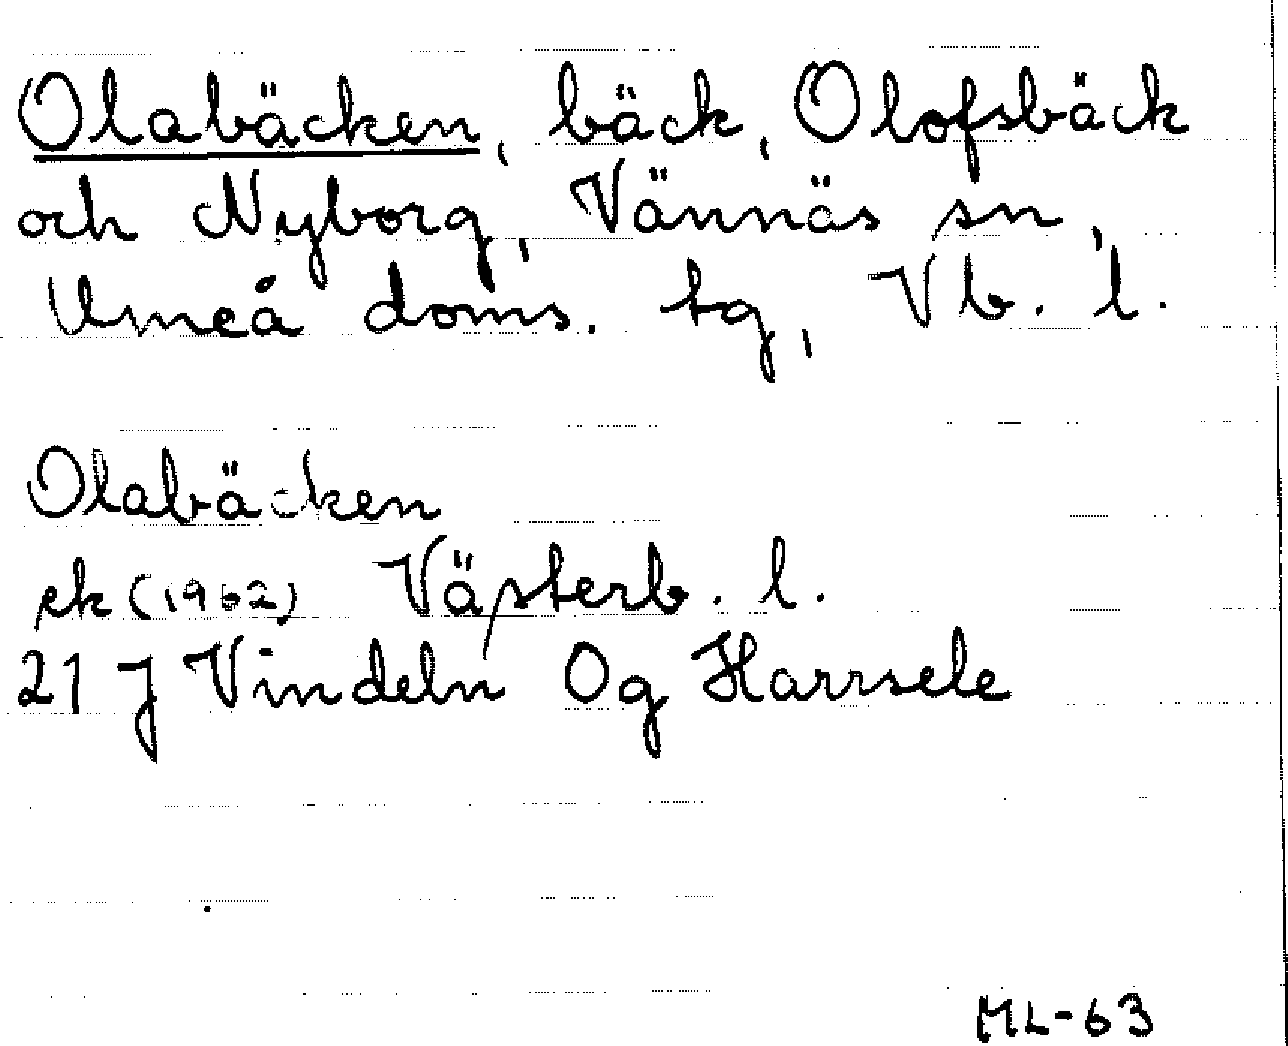 Olabäcken, bäck, Olofsbäck
och Nyborg, Vännäs sn,
Umeå doms. tg, Vb. l.
Olabäcken
ek (1962) Västerb. l.
21 J Vindeln Og Harrsele
ML-63